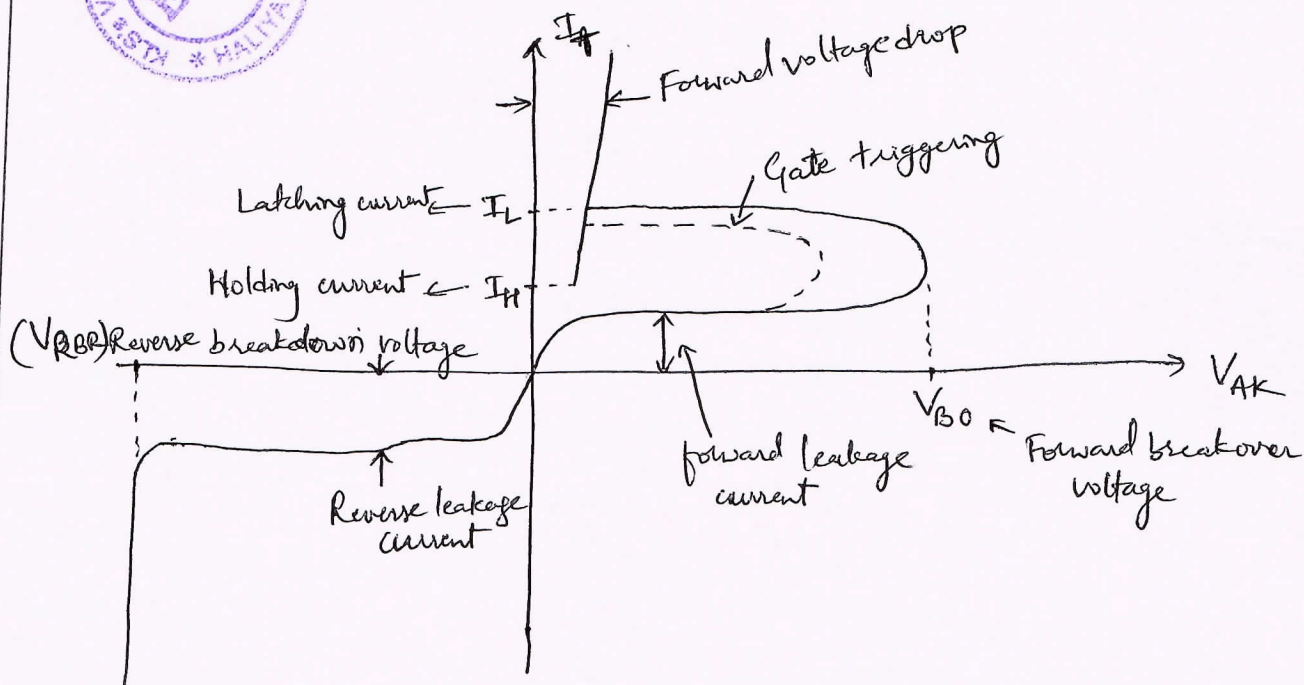 KLS's V
* HALIYA
I_A
Forward voltage drop
Gate triggering
Latching current ← I_L
Holding current ← I_H
(V_RBR) Reverse breakdown voltage
V_AK
V_BO
Forward breakover
voltage
forward leakage
current
Reverse leakage
current